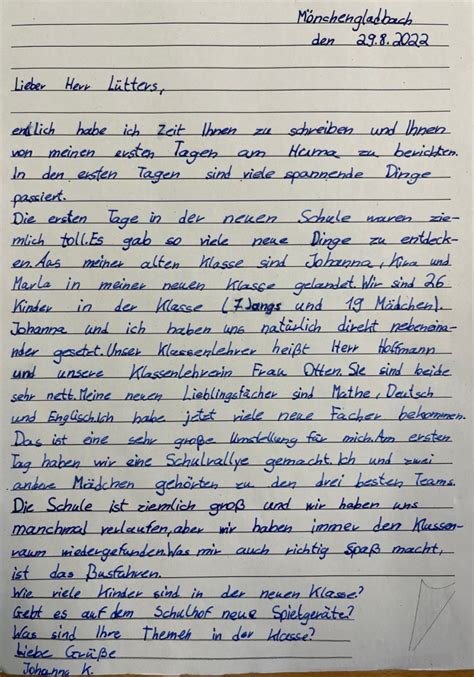 Mönchengladbach
den 29.8.2022
Lieber Herr Lütters,
endlich habe ich Zeit Ihnen zu schreiben und Ihnen
von meinen ersten Tagen am Huma zu berichten.
In den ersten Tagen sind viele spannende Dinge
passiert.
Die ersten Tage in der neuen Schule waren zie-
mlich toll. Es gab so viele neue Dinge zu entdeck-
en. Aus meiner alten Klasse sind Johanna, Kira und
Marla in meiner neuen Klasse gelandet. Wir sind 26
Kinder in der Klasse (7 Jungs und 19 Mädchen).
Johanna und ich haben uns natürlich direkt nebeneina-
nder gesetzt. Unser Klassenlehrer heißt Herr Hoffmann
und unsere Klassenlehrerin Frau Otten. Sie sind beide
sehr nett. Meine neuen Lieblingsfächer sind Mathe, Deutsch
und Englisch. Ich habe jetzt viele neue Fächer bekommen.
Das ist eine sehr große Umstellung für mich. Am ersten
Tag haben wir eine Schulrallye gemacht. Ich und zwei
andere Mädchen gehörten zu den drei besten Teams.
Die Schule ist ziemlich groß und wir haben uns
manchmal verlaufen, aber wir haben immer den Klassen-
raum wiedergefunden. Was mir auch richtig Spaß macht,
ist das Busfahren.
Wie viele Kinder sind in der neuen Klasse?
Gebt es auf dem Schulhof neue Spielgeräte?
Was sind Ihre Themen in der Klasse?
Liebe Grüße
Johanna K.